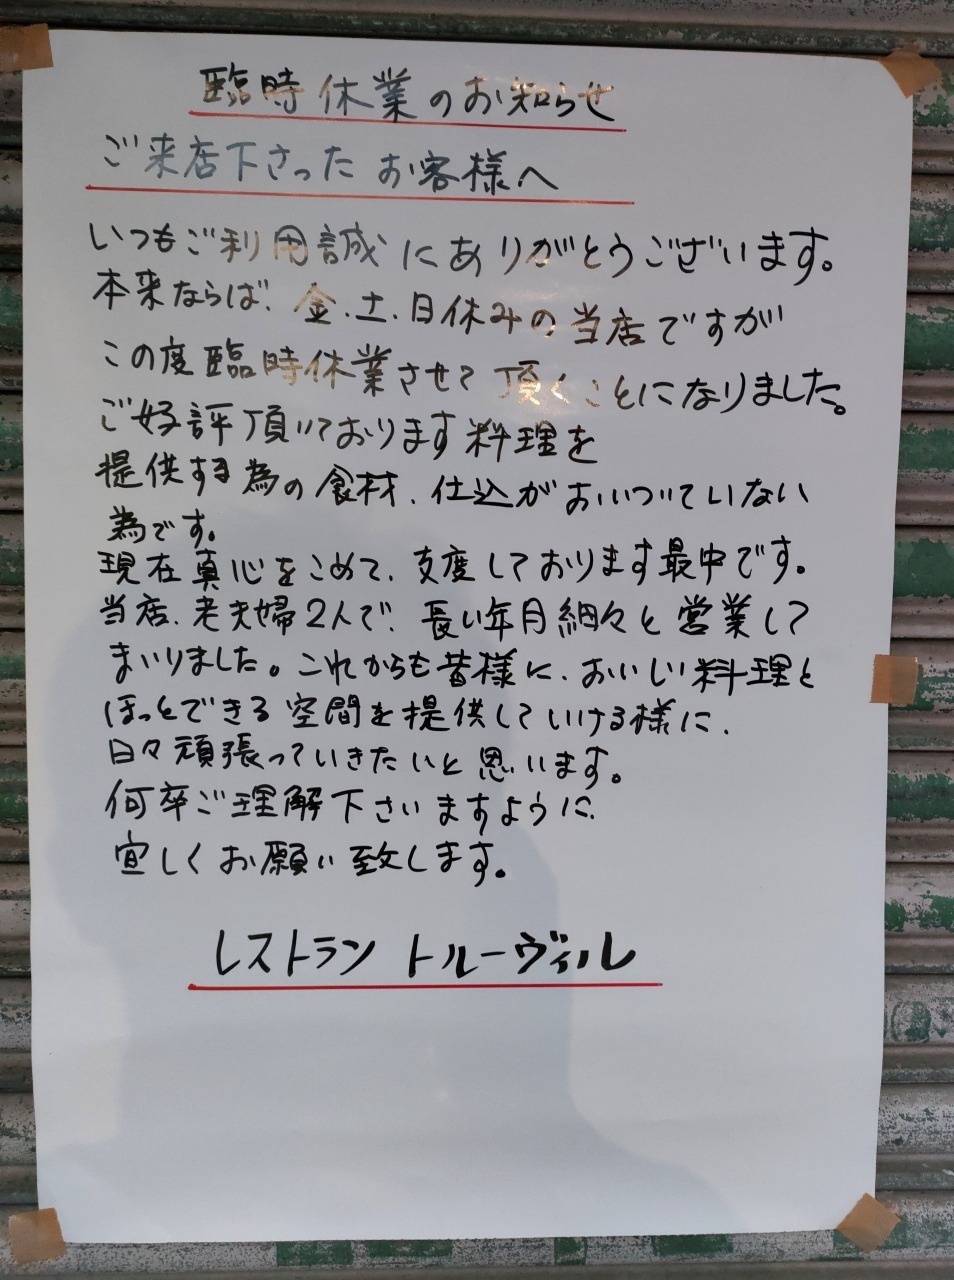 臨時休業のお知らせ
ご来店下さったお客様へ
いつもご利用誠にありがとうございます。
本来ならば、金、土、日休みの当店ですが
この度臨時休業させて頂くことになりました。
ご好評頂いております料理を
提供する為の食材、仕込がおいついていない
為です。
現在真心をこめて、支度しております最中です。
当店、老夫婦2人で、長い年月細々と営業して
まいりました。これからも皆様に、おいしい料理と
ほっとできる空間を提供していける様に、
日々頑張っていきたいと思います。
何卒ご理解下さいますように、
宜しくお願い致します。
レストラン トルーヴィル